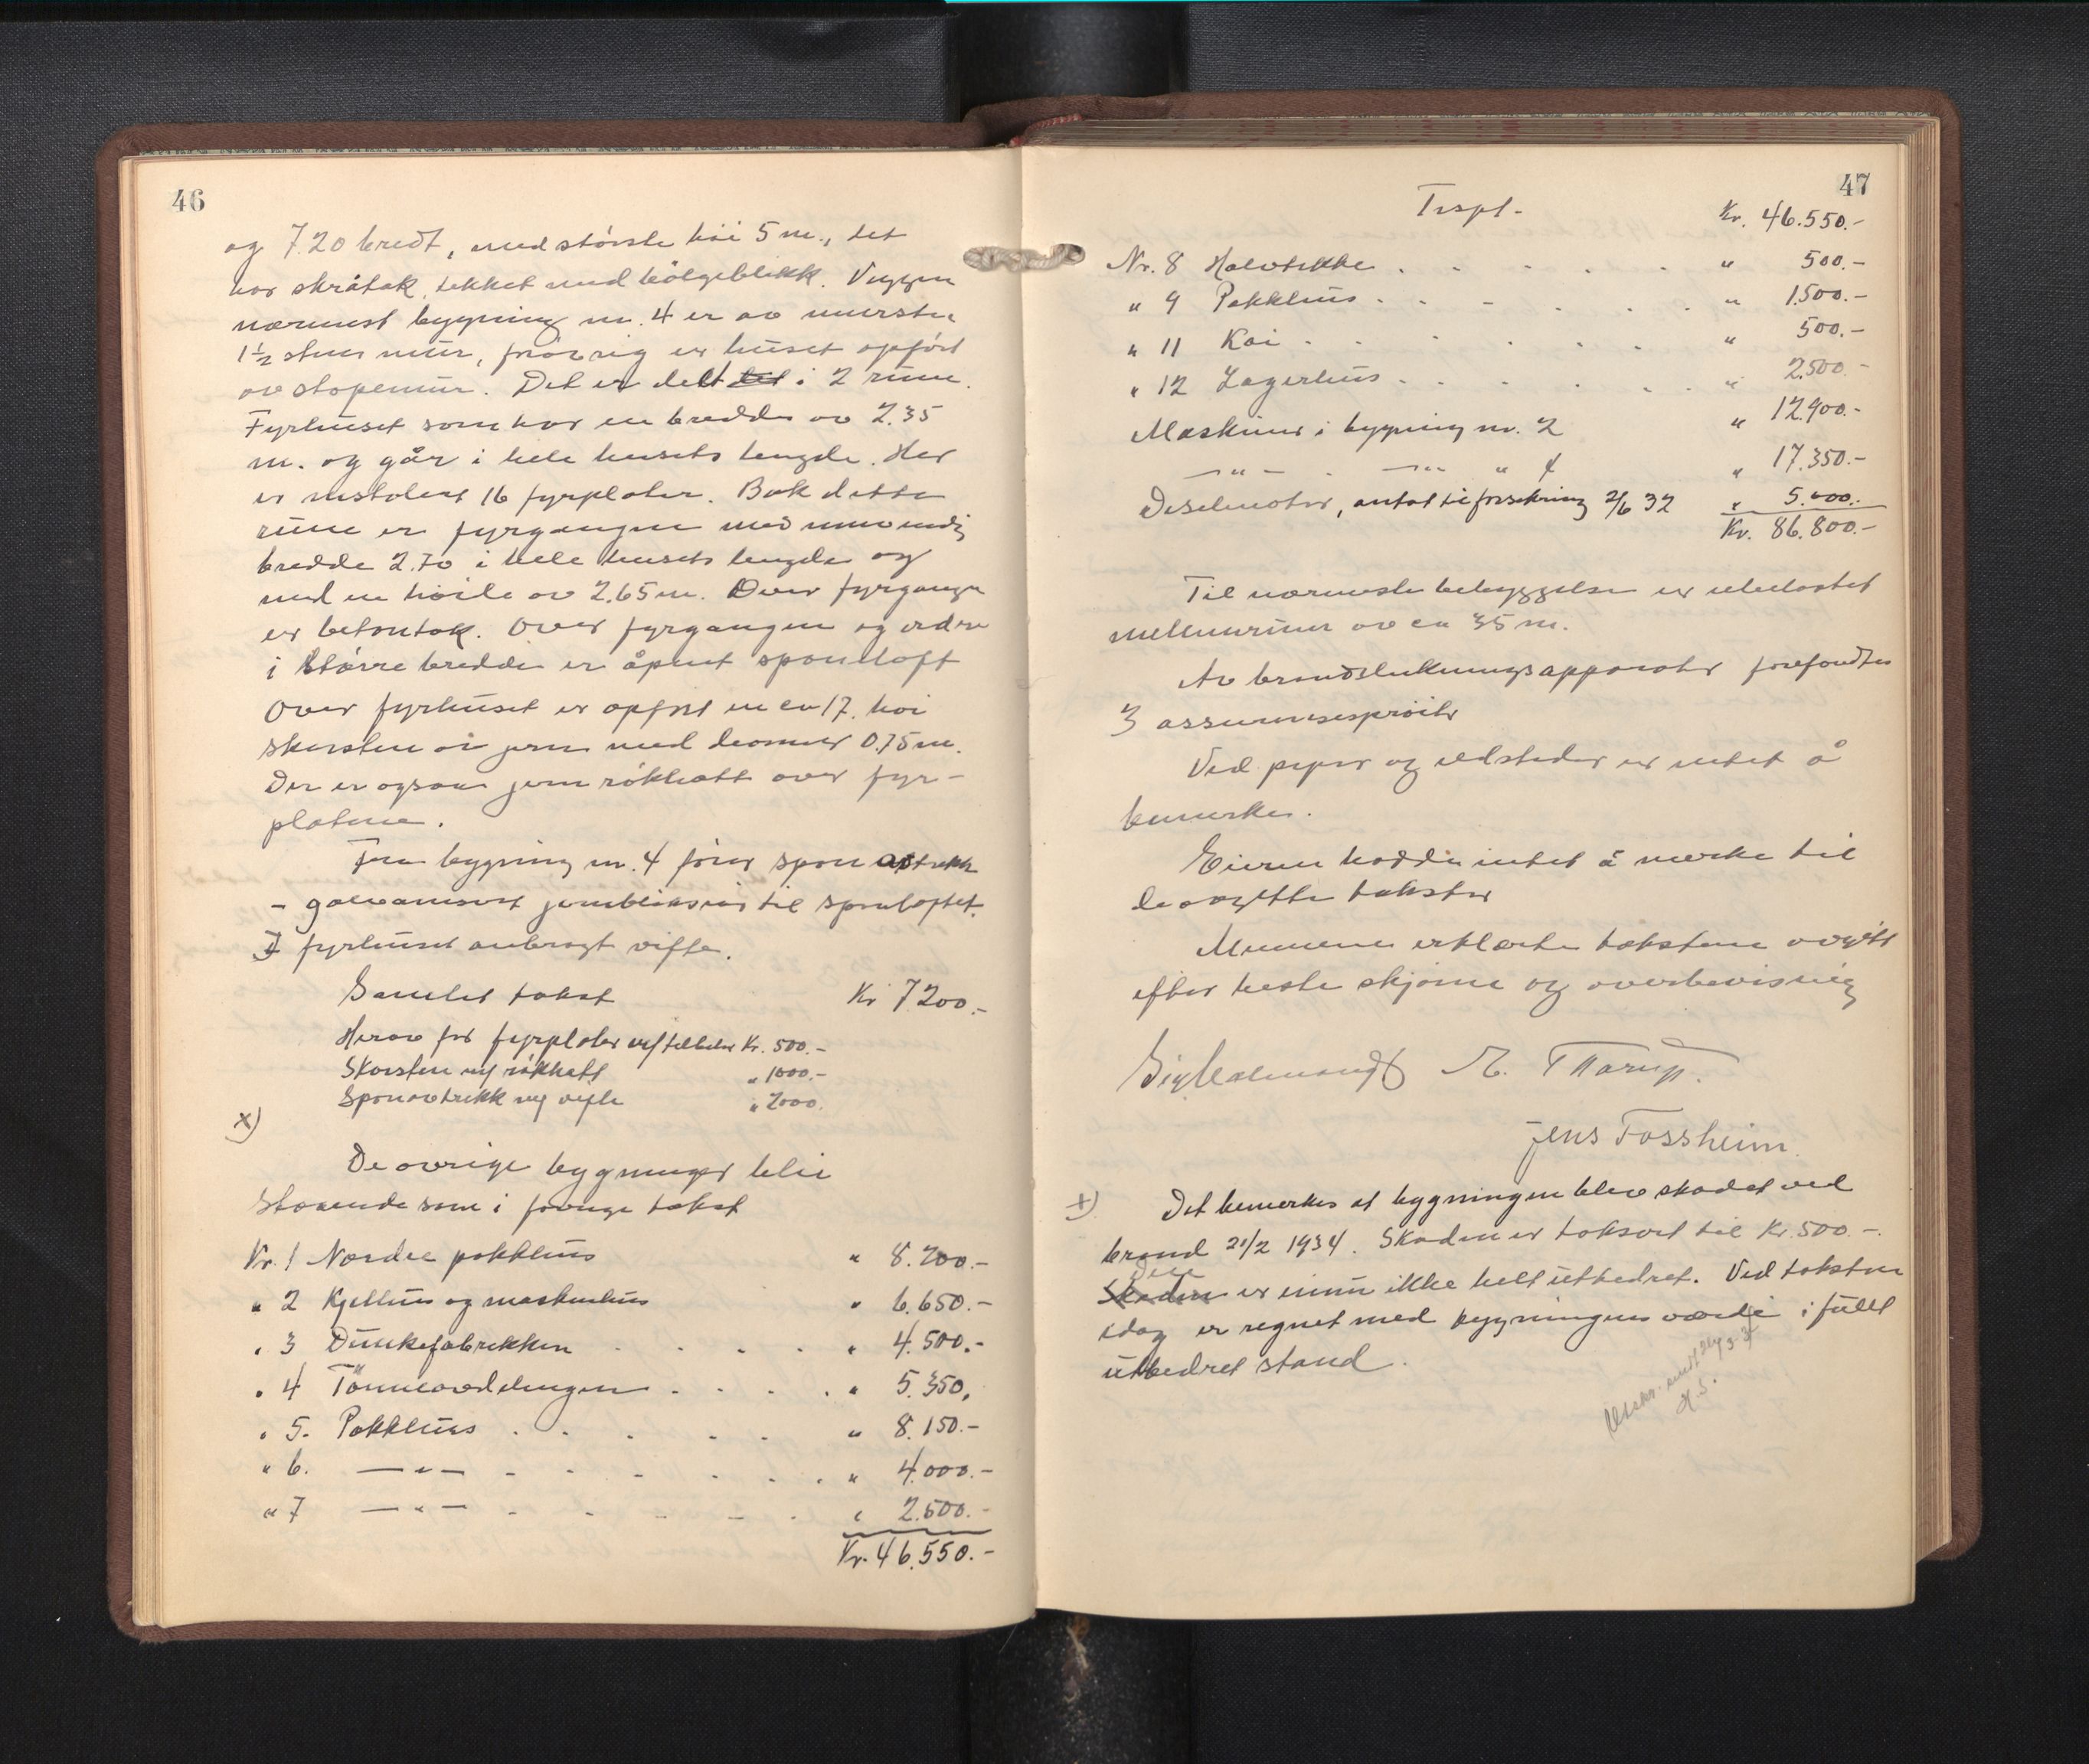 46
og 7.20 bredt, med største høi 5 m., det
har skråtak, tekket med bølgeblikk. Veggen
nærmest bygning nr. 4 er av murste
1½ stens mur, forøvrig er huset opført
av støpemur. Det er delt det i 2 rum.
Fyrhuset som har en bredde av 2.35
m. og går i hele husets lengde. Her
er instalert 16 fyrplater. Bak dette
rum er fyrgangen med innvendig
bredde 2.70 i hele husets lengde og
med en høide av 2.65 m. Over fyrgangen
er betontak. Over fyrgangen og videre
i større bredde er åpent sponeloft
Over fyrhuset er opført en ca 17. høi
skorsten av jern med diameter 0.75 m.
Der er ogsaa jern røkhatt over fyr-
platene.
Fra bygning nr. 4 fører spon avtrekk
- galvanisert jernblikrør til sponloftet.
I fyrhuset anbragt vifte.
Samlet takst Kr 7200.-
Herav for fyrplater m/tilbehør Kr. 500.-
Skorsten m/ røkhatt " 1000.-
Sponavtrekk m/ vifte " 2000.
x)
De øvrige bygninger blir
staaende som i forrige takst
Nr. 1 Nordre pakkhus " 8.200.-
" 2 Kjelhus og maskinhus " 6.650.-
" 3 Dunkefabrikken . . . . " 4.500.-
" 4 Tønneavdelingen . . . . " 5.350.
" 5. Pakkhus . . . . . " 8.150.-
" 6. — " — . . . . . . " 4.000.-
" 7 — " — . . . . . " 2.500.-
Kr. 46.550.-
47
Trspt. Kr. 46.550.-
Nr. 8 Halvtekke . . . . . " 500.-
" 9 Pakkhus . . . . . . " 1.500.-
" 11 Kai . . . . . . " 500.-
" 12 Lagerhus . . . . . " 2.500.-
Maskiner i bygning nr. 2 " 12.900.-
— " — . — " " 4 " 17.350.-
Deselmotor, antat til forsikring 2/6 32 " 5.000.-
Kr. 86.800.-
Til nærmeste bebyggelse er ubelastet
mellemrum av ca 35 m.
Av brandslukningsapparater forefandtes
3 assuransesprøiter
Ved piper og ildsteder er intet å
bemerke.
Eieren hadde intet å merke til
de avgitte takster
Mennene erklærte takstene avgitt
efter beste skjønn og overbevisning
M. Tharup.
Jens Fossheim.
x) Det bemerkes at bygningen blev skadet ved
brand 21/2 1934. Skaden er taksert til Kr. 500.-.
Den
Skaden er ennu ikke helt utbedret. Ved taksten
idag er regnet med bygningens værdi i fullt
utbedret stand.
H.S.